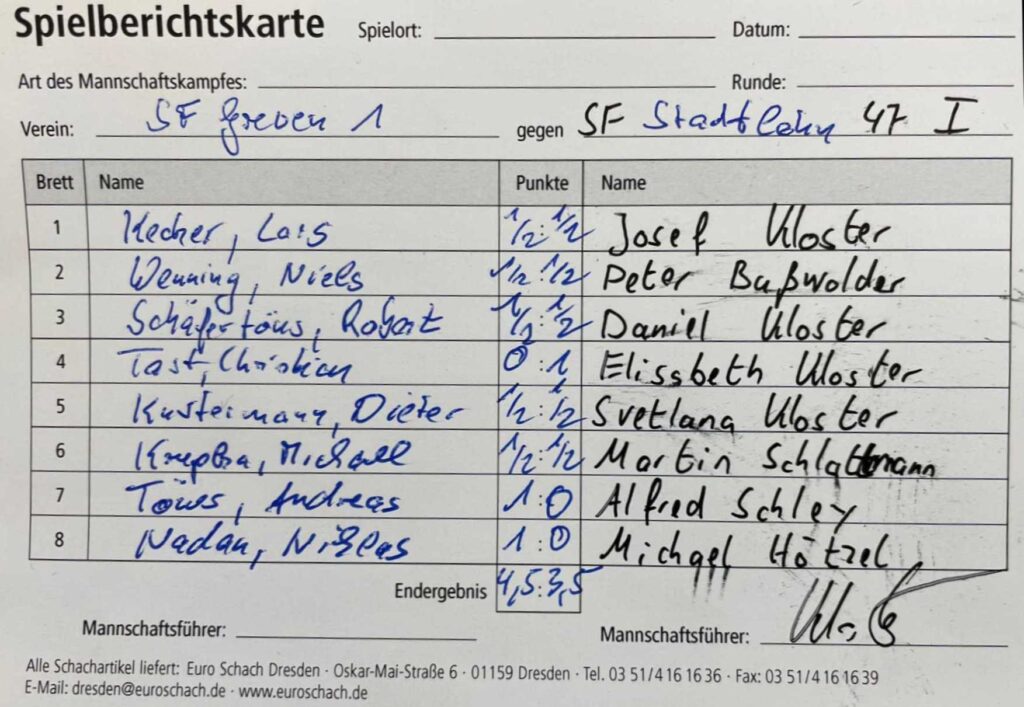 Spielberichtskarte Spielort: Datum:
Art des Mannschaftskampfes: Runde:
Verein: SF Greven 1 gegen SF Stadtlohn 47 I
Brett Name Punkte Name
1 Kecker, Lars 1/2:1/2 Josef Kloster
2 Wenning, Niels 1/2:1/2 Peter Bußwolder
3 Schäfertöns, Robert 1/2:1/2 Daniel Kloster
4 Tast, Christian 0:1 Elissbeth Kloster
5 Kustermann, Dieter 1/2:1/2 Svetlana Kloster
6 Michael 1/2:1/2 Martin Schlattmann
7 Töws, Andreas 1:0 Alfred Schley
8 Nadan, Niklas 1:0 Michael Hötzel
Endergebnis 4,5:3,5
Mannschaftsführer: Mannschaftsführer:
Alle Schachartikel liefert: Euro Schach Dresden · Oskar-Mai-Straße 6 · 01159 Dresden · Tel. 03 51/4 16 16 36 · Fax: 03 51/4 16 16 39
E-Mail: dresden@euroschach.de · www.euroschach.de